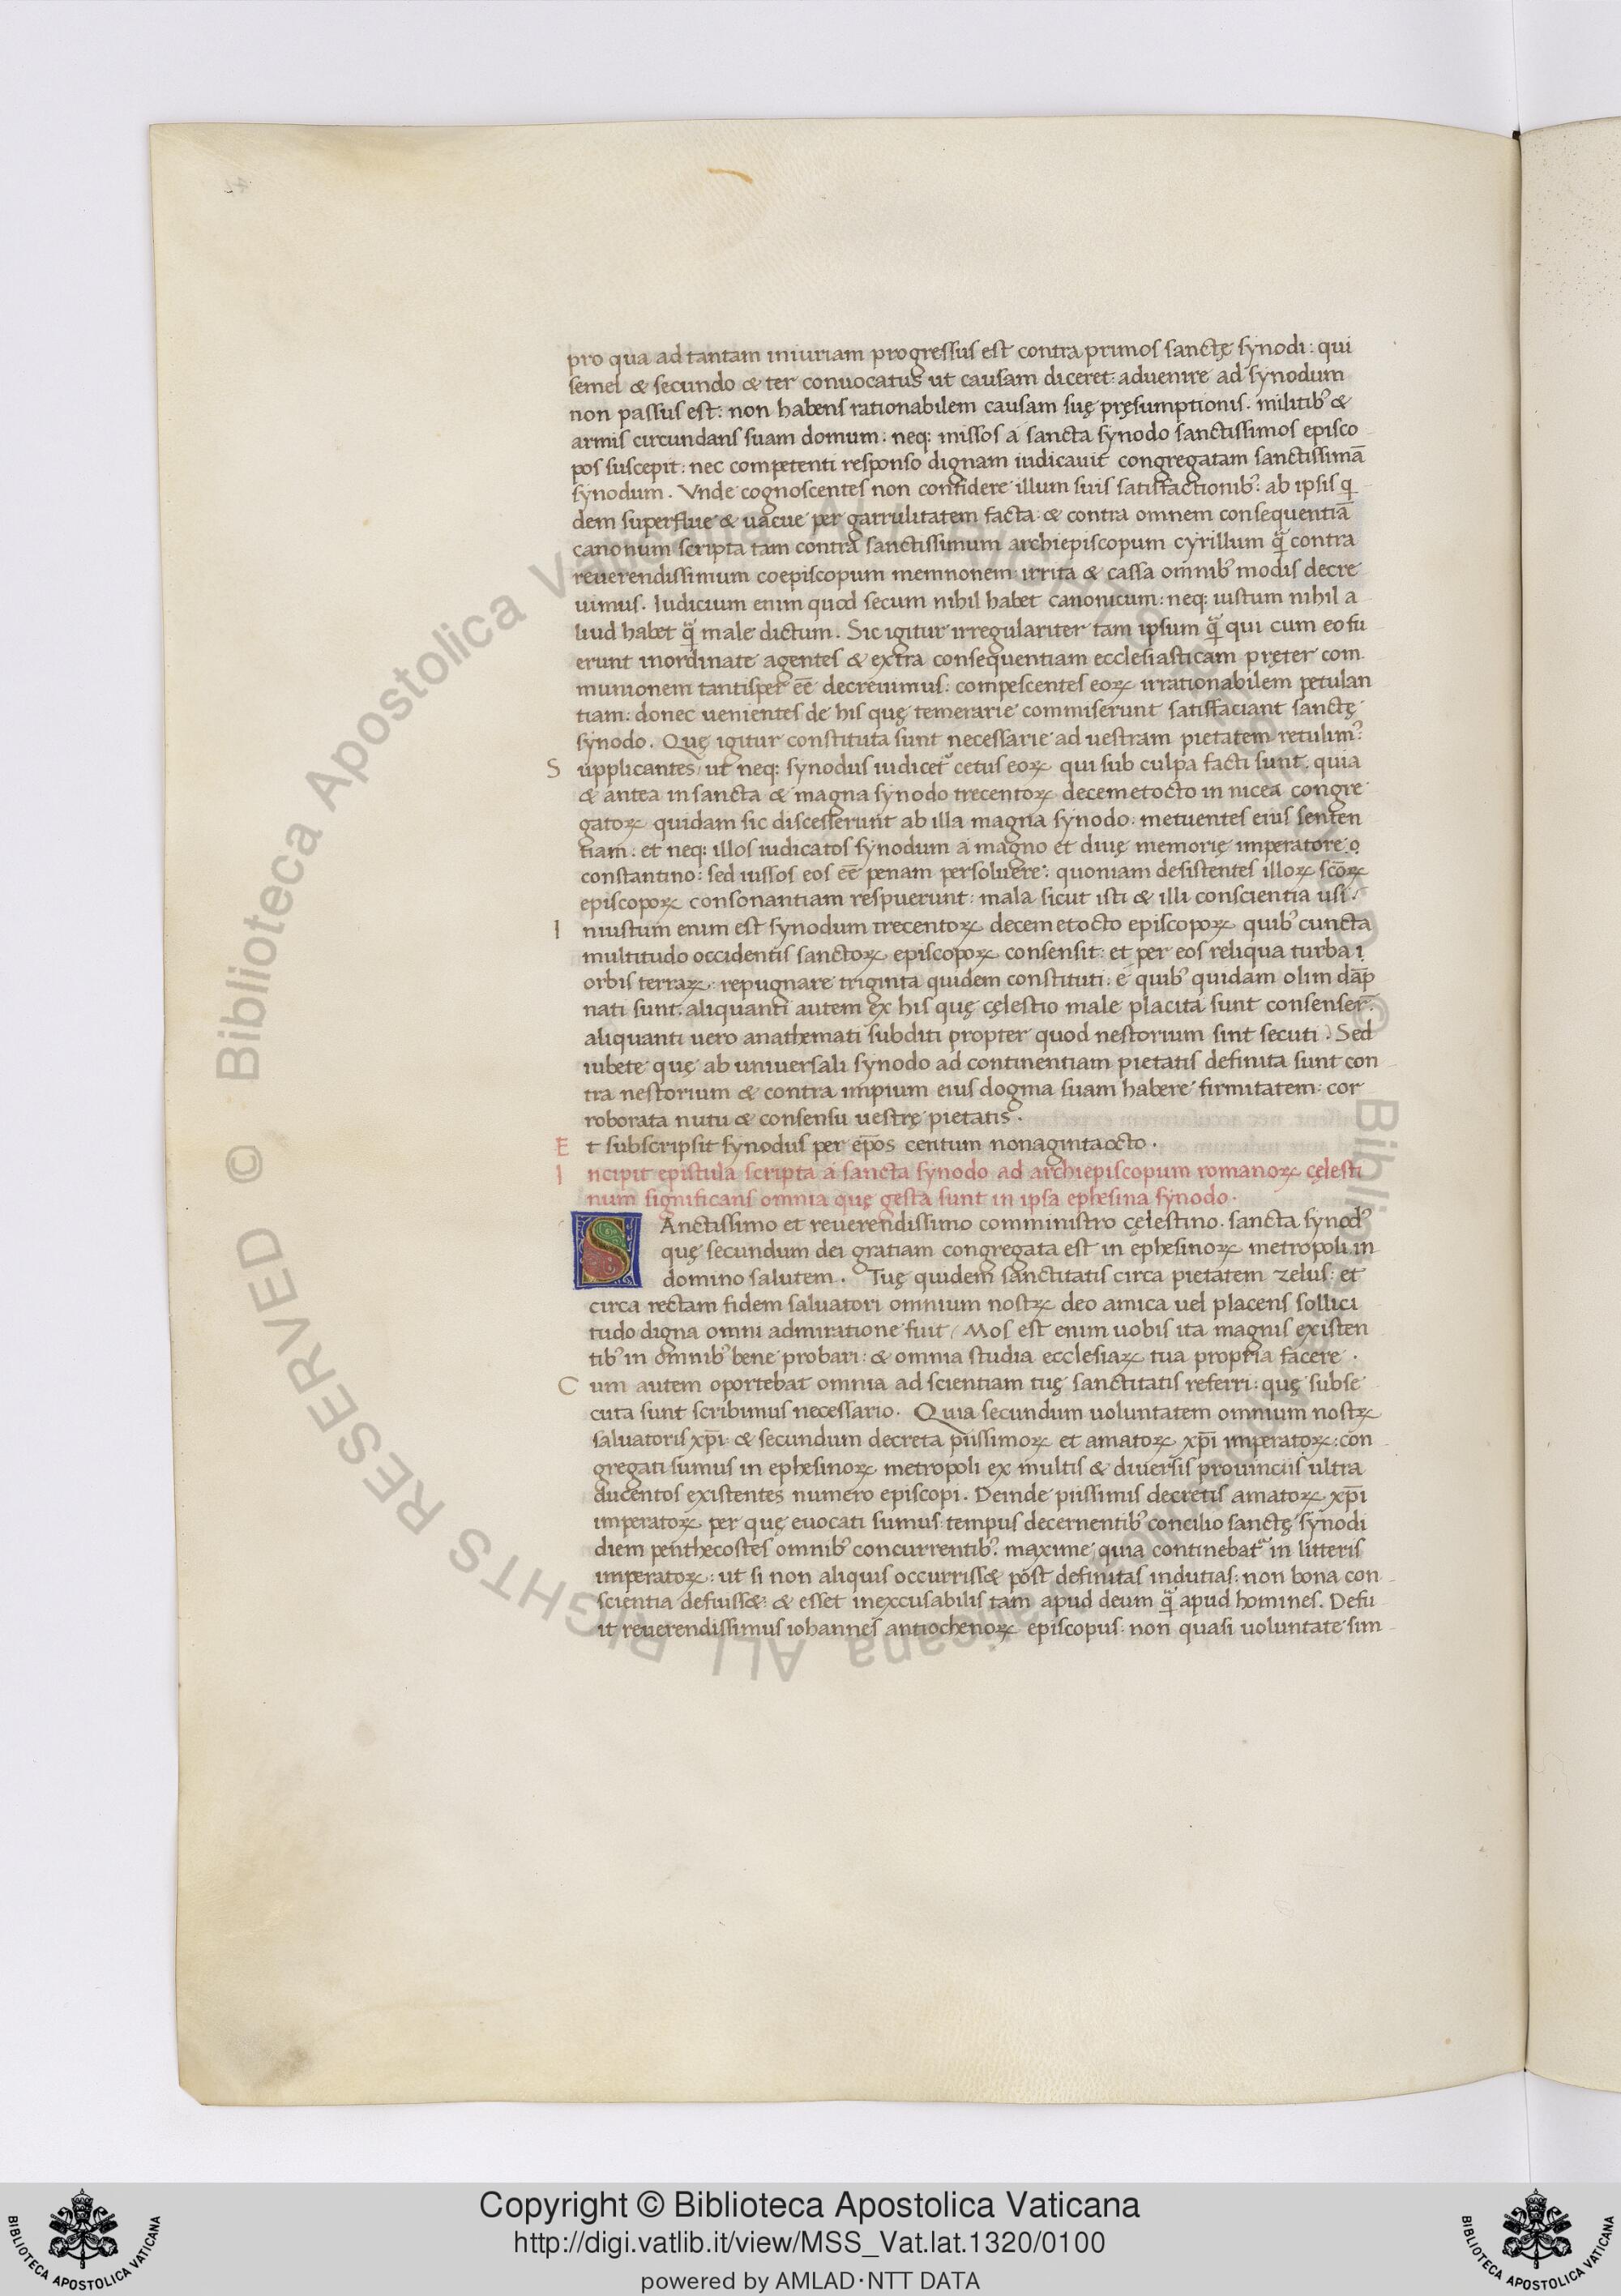 pro qua ad tantam iniuriam progressus est contra primos sanctę synodi: qui
semel & secundo & ter conuocatus ut causam diceret: aduenire ad synodum
non passus est: non habens rationabilem causam suę pręsumptionis. militibꝰ &
armis circundans suam domum: neq: missos a sancta synodo sanctissimos episco
pos suscepit: nec competenti responso dignam iudicauit congregatam sanctissimā
synodum. Vnde cognoscentes non confidere illum suis satisfactionibꝰ: ab ipsis q
dem superflue & uacue per garrulitatem facta: & contra omnem consequentiā
canonum scripta tam contra sanctissimum archiepiscopum cyrillum q̃ contra
reuerendissimum coepiscopum memnonem: irrita & cassa omnibꝰ modis decre
uimus. Iudicium enim quod secum nihil habet canonicum: neq: iustum nihil a
liud habet q̃ male dictum. Sic igitur irregulariter tam ipsum q̃ qui cum eo fu
erunt inordinate agentes & extra consequentiam ecclesiasticam pręter com
munionem tantisper eē decreuimus: compescentes eoꝝ irrationabilem petulan
tiam: donec uenientes de his quę temerarie commiserunt satisfaciant sanctę
synodo. Quę igitur constituta sunt necessarie ad uestram pietatem retulimꝰ
Supplicantes / ut neq: synodus iudicet᷑ cetus eoꝝ qui sub culpa facti sunt. quia
& antea in sancta & magna synodo trecentoꝝ decemetocto in nicea congre
gatoꝝ quidam sic discesserunt ab illa magna synodo: metuentes eius senten
tiam: et neq: illos iudicatos synodum a magno et diuę memorię imperatore
constantino: sed iussos eos eē penam persoluere: quoniam desistentes illoꝝ scōꝝ
episcopoꝝ consonantiam respuerunt: mala sicut isti & illi conscientia usi.
Iniustum enim est synodum trecentoꝝ decemetocto episcopoꝝ quibꝰ cuncta
multitudo occidentis sanctoꝝ episcopoꝝ consensit: et per eos reliqua turba
orbis terraꝝ: repugnare triginta quidem constituti: e quibꝰ quidam olim dāp
nati sunt. aliquanti autem ex his quę cęlestio male placita sunt consenser̄.
aliquanti uero anathemati subditi propter quod nestorium sint secuti. Sed
iubete quę ab uniuersali synodo ad continentiam pietatis definita sunt con
tra nestorium & contra impium eius dogma suam habere firmitatem: cor
roborata nutu & consensu uestrę pietatis.
Et subscripsit synodus per ep̄os centum nonagintaocto.
Incipit epistula scripta a sancta synodo ad archiepiscopum romanoꝝ cęlesti
num significans omnia quę gesta sunt in ipsa ephesina synodo.
SAnctissimo et reuerendissimo comministro cęlestino. sancta synodꝰ
quę secundum dei gratiam congregata est in ephesinoꝝ metropoli in
domino salutem. Tuę quidem sanctitatis circa pietatem zelus: et
circa rectam fidem saluatori omnium nostꝝ deo amica uel placens sollici
tudo digna omni admiratione fuit / Mos est enim uobis ita magnis existen
tibꝰ in omnibꝰ bene probari: & omnia studia ecclesiaꝝ tua propria facere.
Cum autem oportebat omnia ad scientiam tuę sanctitatis referri: quę subse
cuta sunt scribimus necessario. Quia secundum uoluntatem omnium nostꝝ
saluatoris xp̄i: & secundum decreta piissimoꝝ et amatoꝝ xp̄i imperatoꝝ: con
gregati sumus in ephesinoꝝ metropoli ex multis & diuersis prouinciis ultra
ducentos existentes numero episcopi. Deinde piissimis decretis amatoꝝ xp̄i
imperatoꝝ per quę euocati sumus: tempus decernentibꝰ concilio sanctę synodi
diem penthecostes omnibꝰ concurrentibꝰ. maxime quia continebat᷑ in litteris
imperatoꝝ: ut si non aliquis occurriss& post definitas indutias: non bona con
scientia defuiss&: & esset inexcusabilis tam apud deum q̃ apud homines. Defu
it reuerendissimus iohannes antiochenoꝝ episcopus: non quasi uoluntate sim
© Biblioteca Apostolica Vaticana ALL RIGHTS RESERVED
Copyright © Biblioteca Apostolica Vaticana
http://digi.vatlib.it/view/MSS_Vat.lat.1320/0100
powered by AMLAD·NTT DATA
BIBLIOTECA APOSTOLICA VATICANA
BIBLIOTECA APOSTOLICA VATICANA